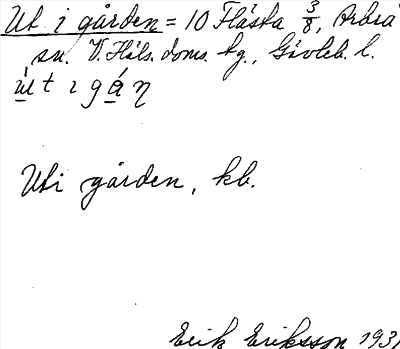 Ut i gården = 10 Flästa 3/8, Arbrå
sn. V. Häls. doms. tg., Gävleb. l.
út ı gá̱ ɳ
Uti gården, kb.
Erik Eriksson 1931